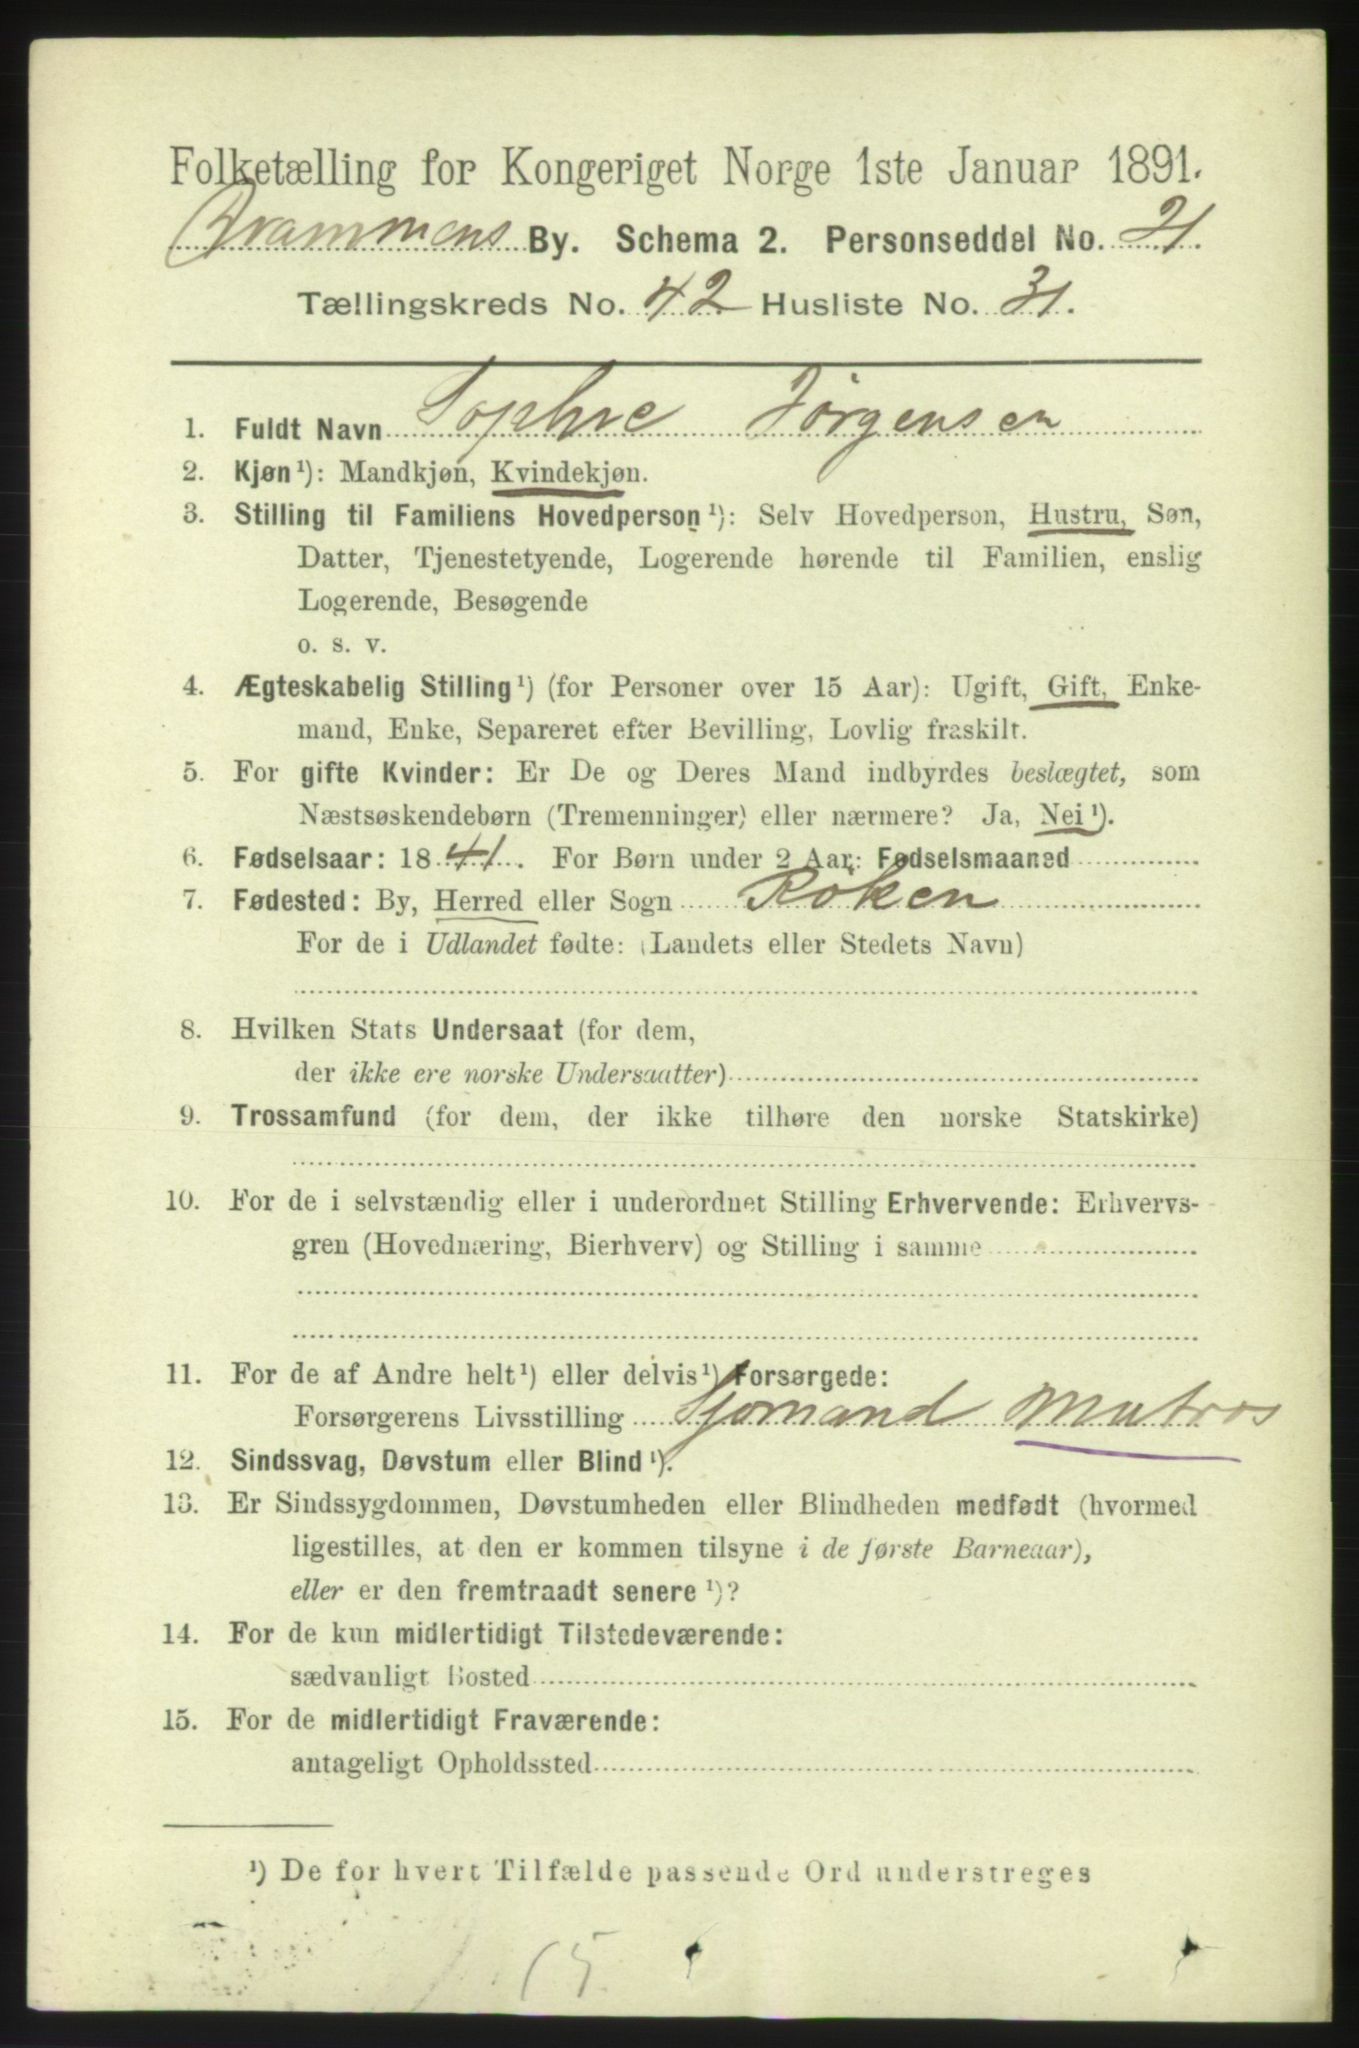 Folketælling for Kongeriget Norge 1ste Januar 1891.
Drammens By. Schema 2. Personseddel No. 21.
Tællingskreds No. 42 Husliste No. 31.
1. Fuldt Navn Sophie Jörgensen
2. Kjøn¹): Mandkjøn, Kvindekjøn.
3. Stilling til Familiens Hovedperson¹): Selv Hovedperson, Hustru, Søn,
Datter, Tjenestetyende, Logerende hørende til Familien, enslig
Logerende, Besøgende
o. s. v.
4. Ægteskabelig Stilling¹) (for Personer over 15 Aar): Ugift, Gift, Enke-
mand, Enke, Separeret efter Bevilling, Lovlig fraskilt.
5. For gifte Kvinder: Er De og Deres Mand indbyrdes beslægtet, som
Næstsøskendebørn (Tremenninger) eller nærmere? Ja, Nei¹).
6. Fødselsaar: 1841. For Børn under 2 Aar: Fødselsmaaned
7. Fødested: By, Herred eller Sogn Röken
For de i Udlandet fødte: (Landets eller Stedets Navn)
8. Hvilken Stats Undersaat (for dem,
der ikke ere norske Undersaatter)
9. Trossamfund (for dem, der ikke tilhøre den norske Statskirke)
10. For de i selvstændig eller i underordnet Stilling Erhvervende: Erhvervs-
gren (Hovednæring, Bierhverv) og Stilling i samme
11. For de af Andre helt¹) eller delvis¹) Forsørgede:
Forsørgerens Livsstilling Sjömand Matros
12. Sindssvag, Døvstum eller Blind¹).
13. Er Sindssygdommen, Døvstumheden eller Blindheden medfødt (hvormed
ligestilles, at den er kommen tilsyne i de første Barneaar),
eller er den fremtraadt senere¹)?
14. For de kun midlertidigt Tilstedeværende:
sædvanligt Bosted
15. For de midlertidigt Fraværende:
antageligt Opholdssted
¹) De for hvert Tilfælde passende Ord understreges
15